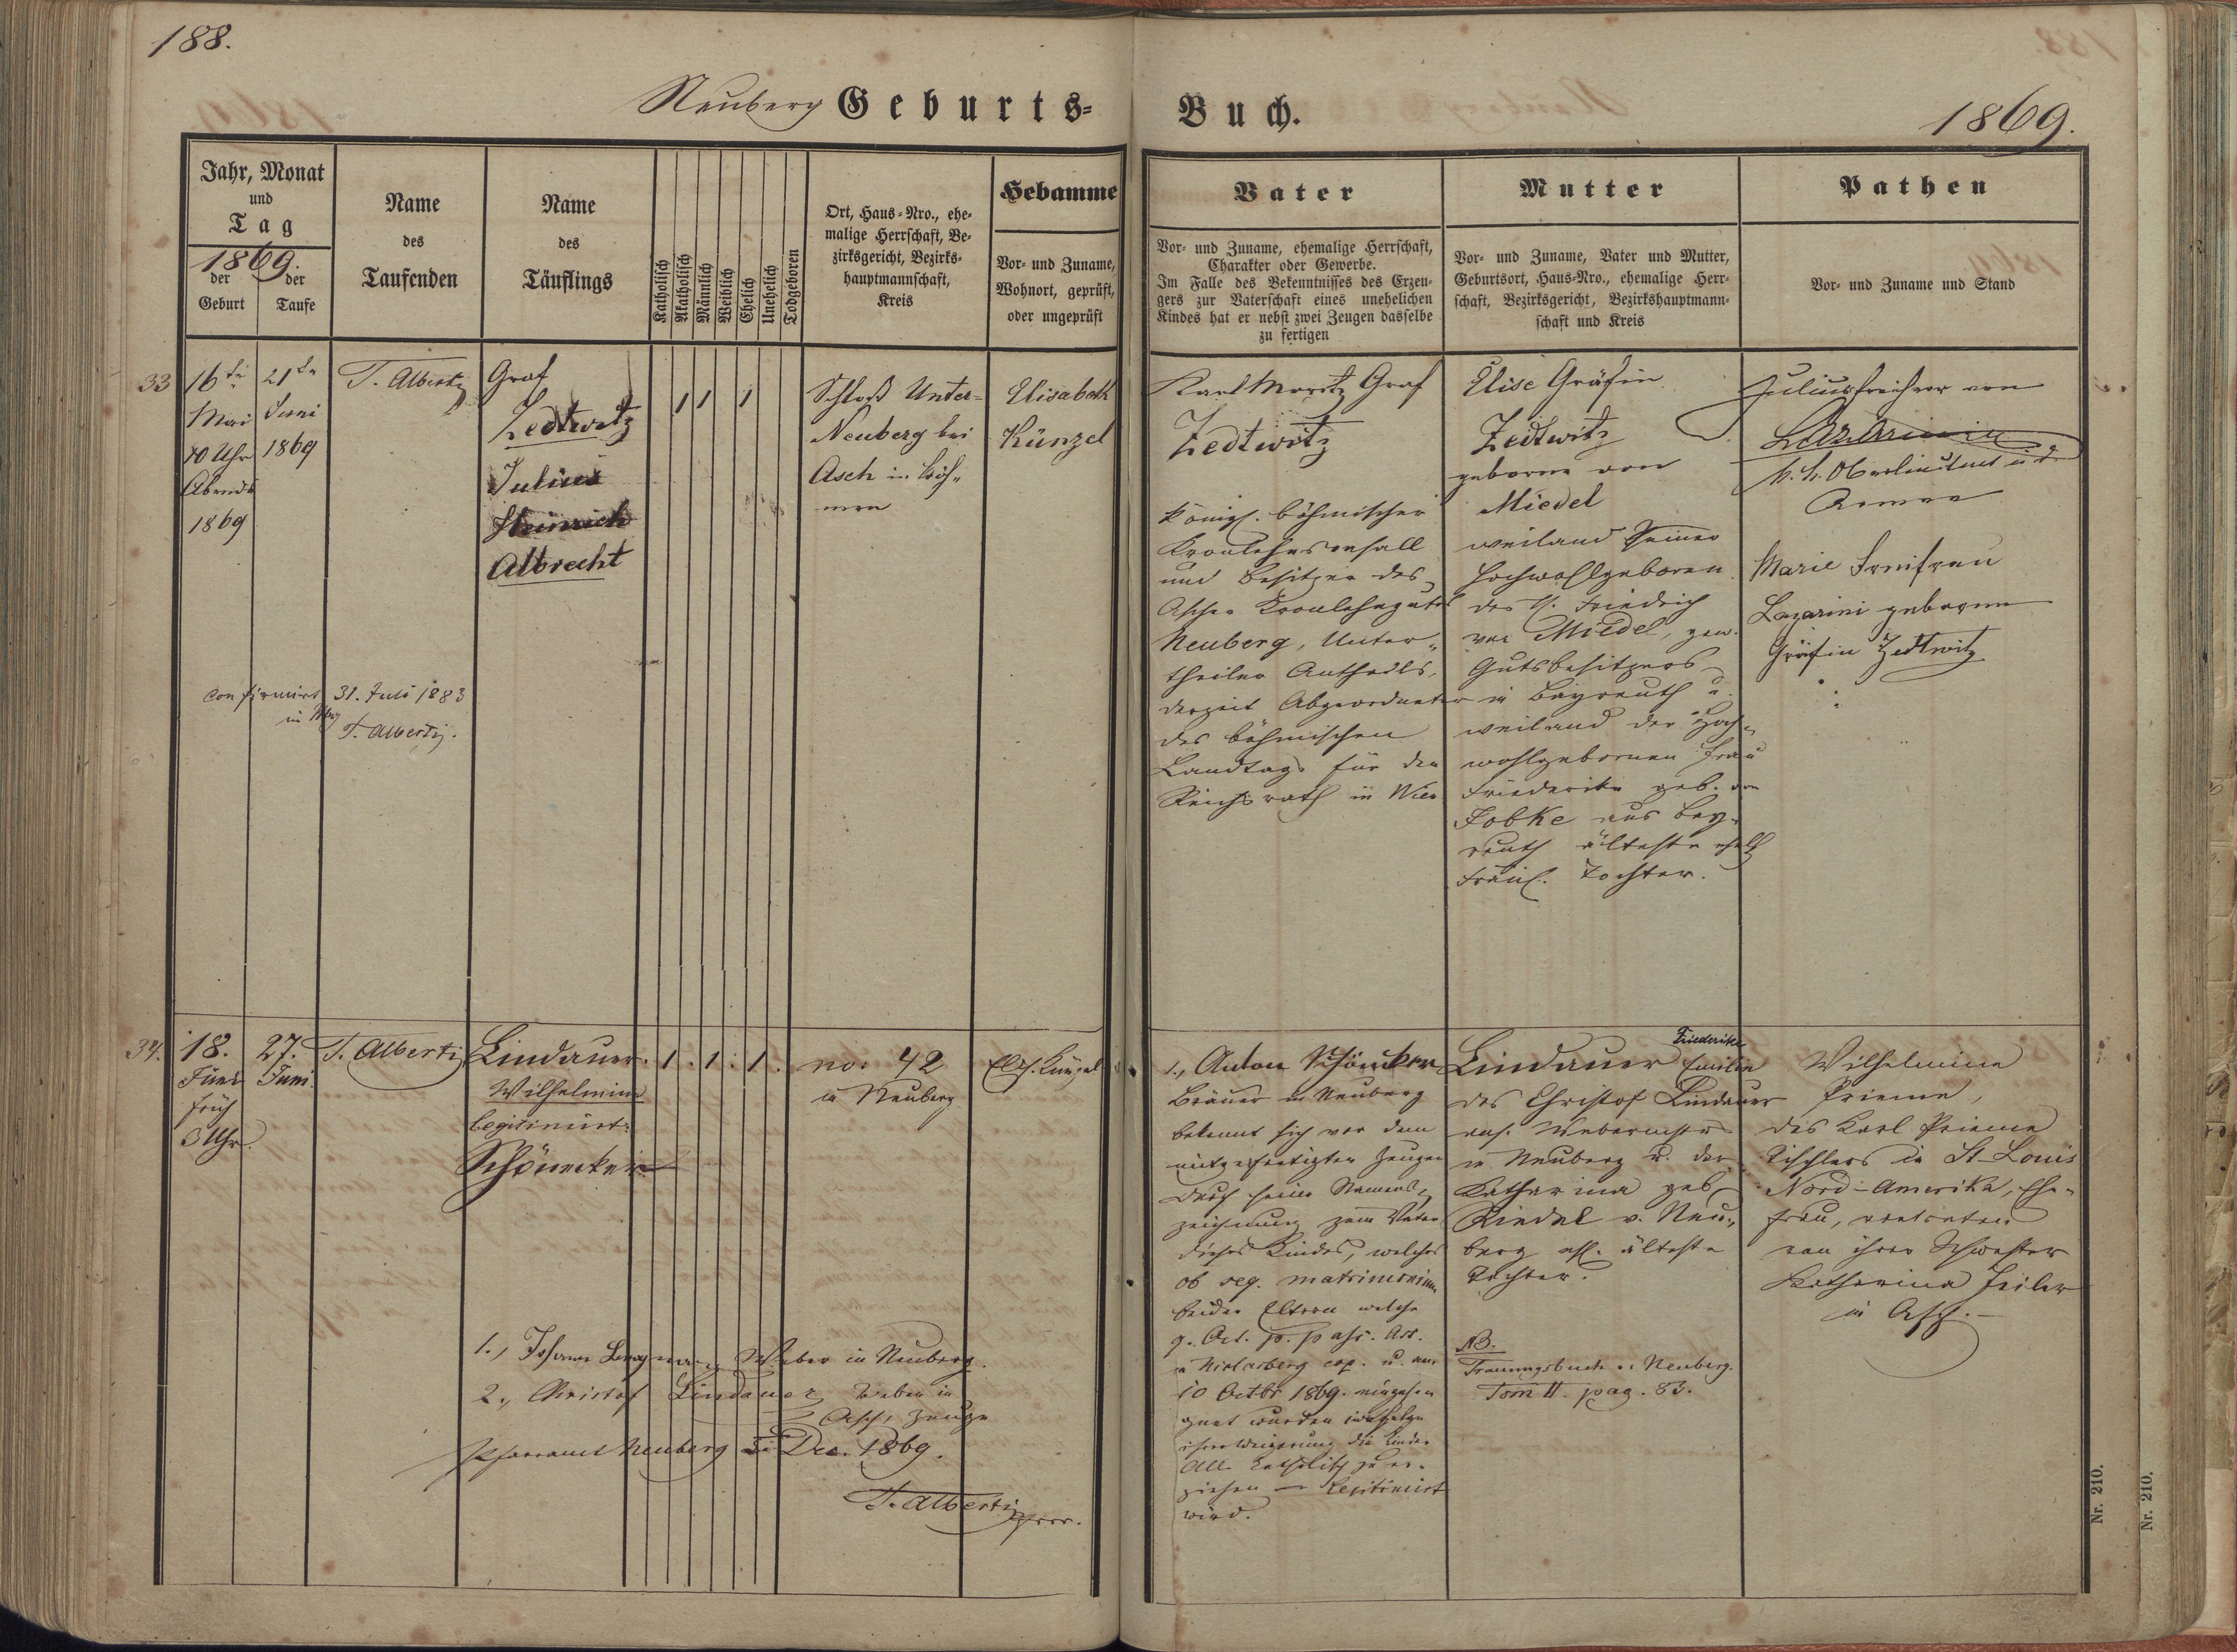 188.
Neuberg Geburts-
Buch.
1869.
Jahr, Monat
und
Tag
1869.
der
Geburt
der
Taufe
Name
des
Taufenden
Name
des
Täuflings
Katholisch
Akatholisch
Männlich
Weiblich
Ehelich
Unehelich
Todgeboren
Ort, Haus-Nro., ehe-
malige Herrschaft, Be-
zirksgericht, Bezirks-
hauptmannschaft,
Kreis
Hebamme
Vor- und Zuname,
Wohnort, geprüft,
oder ungeprüft
Vater
Vor- und Zuname, ehemalige Herrschaft,
Charakter oder Gewerbe.
Im Falle des Bekenntnisses des Erzeu-
gers zur Vaterschaft eines unehelichen
Kindes hat er nebst zwei Zeugen dasselbe
zu fertigen
Mutter
Vor- und Zuname, Vater und Mutter,
Geburtsort, Haus-Nro., ehemalige Herr-
schaft, Bezirksgericht, Bezirkshauptmann-
schaft und Kreis
Pathen
Vor- und Zuname und Stand
33
16te
Mai
10 Uhr
Abends
1869
21te
Juni
1869
T. Alberti
Graf
Zedtwitz
Julius
Heinrich
Albrecht
1 1 1
Schloß Unter-
Neuberg bei
Asch in Böh-
men
Elisabeth
Künzel
Karl Moritz Graf
Zedtwitz
königl. böhmischer
Kronlehensvasall
und Besitzer des
Ascher Kronlehngutes
Neuberg, Unter-
theiler Antheils,
derzeit Abgeordneter
des böhmischen
Landtags für den
Reichsrath in Wien
Elise Gräfin
Zedtwitz
geborne von
Miedel
weiland Seiner
Hochwohlgeboren
des H. Friedrich
von Miedel, gew.
Gutsbesitzers
in Bayreuth u.
weiland der Hoch-
wohlgebornen Frau
Friederike geb. von
Jobke aus Bay-
reuth älteste ehel.
Fräul. Tochter.
Julius Freiherr von
Lazarini
k. k. Oberlieutnt i. d.
Armee
Marie Freifrau
Lazarini geborene
Gräfin Zedtwitz
confirmirt 31. Juli 1883
T. Alberti.
34.
18.
Juni
früh
3 Uhr.
27.
Juni.
T. Alberti
Lindauer.
Wilhelmine
legitimirt:
Schönecker
1. 1. 1.
no: 42
in Neuberg
Elis. Künzel
1., Anton Schönecker
Bräuer in Neuberg
bekennt sich vor den
mitgefertigten Zeugen
durch seine Namens-
zeichnung zum Vater
dieses Kindes, welches
ob seq. matrimonium
beider Eltern welche
9. Oct. p. pass. Ass.
in Niclasberg cop. u. am
10 Octbr 1869. eingeseg-
gnet wurden
ihrer Weigerung die Kinder
alle katholisch zu er-
ziehen – legitimirt
wird.
Lindauer Friederike
Emilie
des Christof Lindauer
ans. Webermstrs
in Neuberg u. der
Katharina geb.
Riedel v. Neu-
berg ehl. älteste
Tochter.
NB.
Trauungsbuch v: Neuberg.
Tom II. pag. 83.
Wilhelmine
Prieme,
des Karl Prieme
Tischlers in St. Louis
Nord-Amerika, Ehe-
frau, vertreten
von ihrer Schwester
Katharina Zeiler
in Asch.
1., Johann Bergmann, Weber in Neuberg.
2., Christof Lindauer Weber in
Asch, Zeuge
Pfarramt Neuberg 5. Dec. 1869.
T. Alberti Pfrr.
Nr. 210.
Nr. 210.